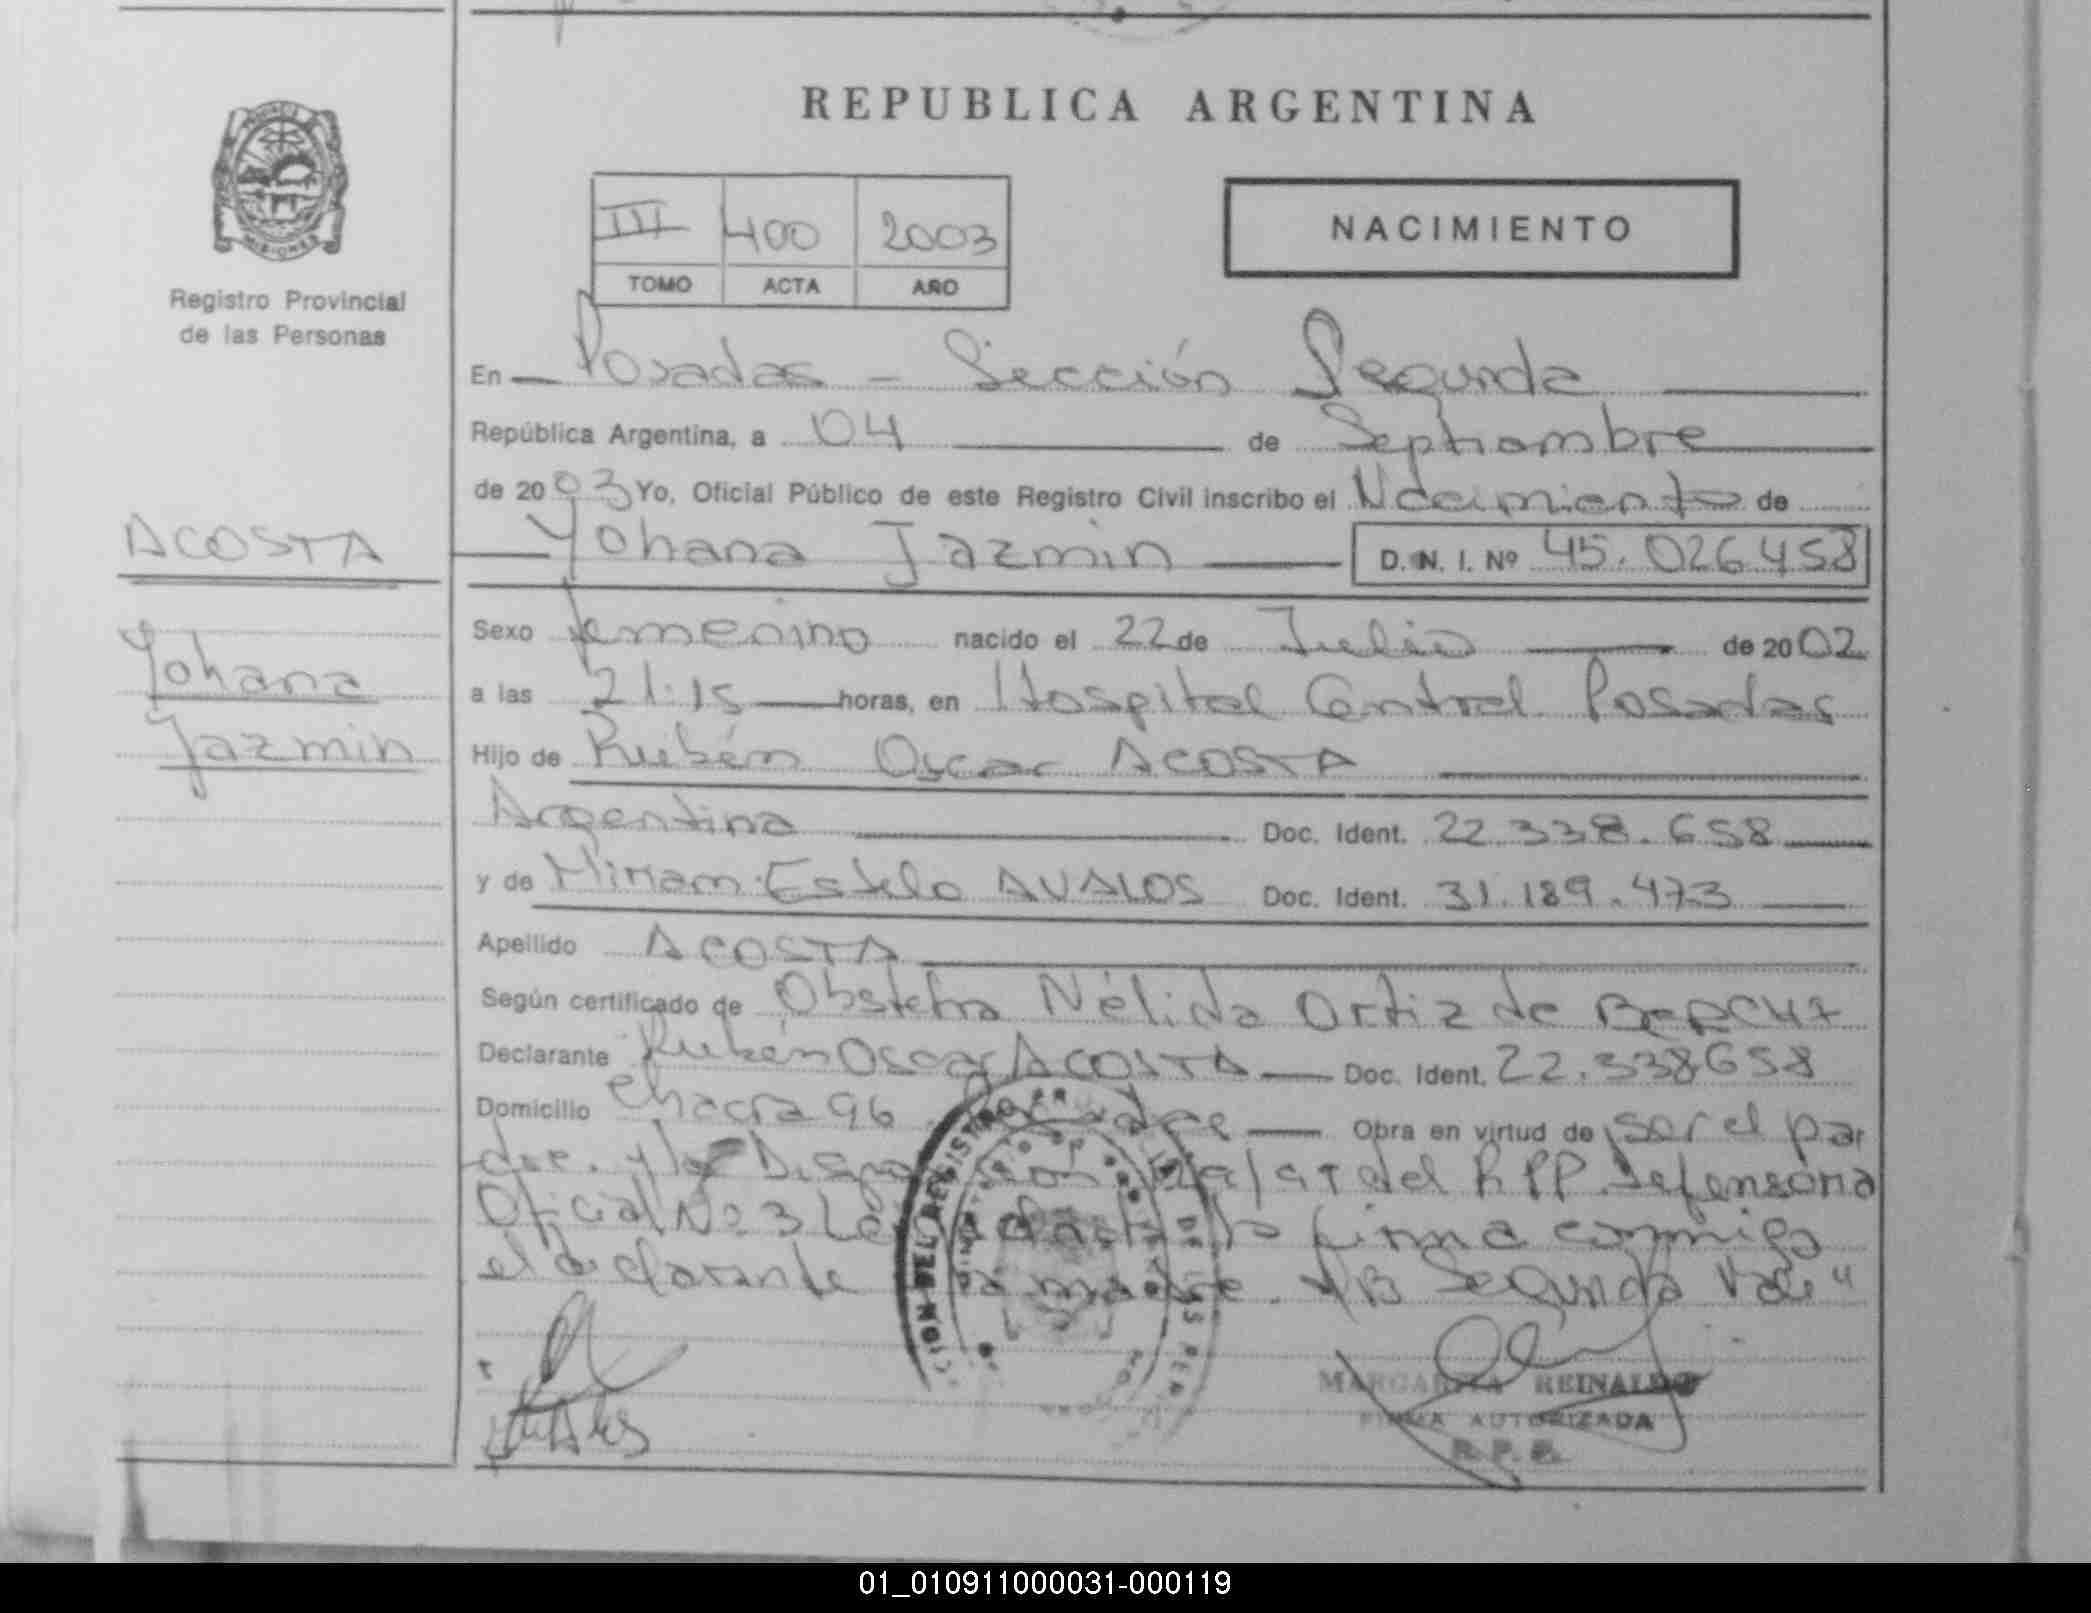 REPUBLICA ARGENTINA
MISIONES
Registro Provincial
de las Personas
III 400 2003
TOMO ACTA AÑO
NACIMIENTO
En Posadas - Sección Segunda
República Argentina, a 04 de Septiembre
de 2003 Yo, Oficial Público de este Registro Civil inscribo el Nacimiento de
ACOSTA
Yohana Jazmin D. N. I. Nº 45.026.458
Sexo femenino nacido el 22 de Julio de 2002
Yohana
a las 21:15 horas, en Hospital Central Posadas
Jazmin
Hijo de Rubén Oscar ACOSTA
Argentina Doc. Ident. 22.338.658
y de Miriam Estela AVALOS Doc. Ident. 31.189.473
Apellido ACOSTA
Según certificado de Obstetra Nélida Ortiz de
Declarante Rubén Oscar ACOSTA Doc. Ident. 22.338658
Domicilio Chacra 96 Obra en virtud de ser el pa
dre. y la del RPP. Defensoria
Oficial Nº 3 firma conmigo
el declarante la madre. Segunda
MARGARITA REINALDO
FIRMA AUTORIZADA
R. P. P.
01_010911000031-000119